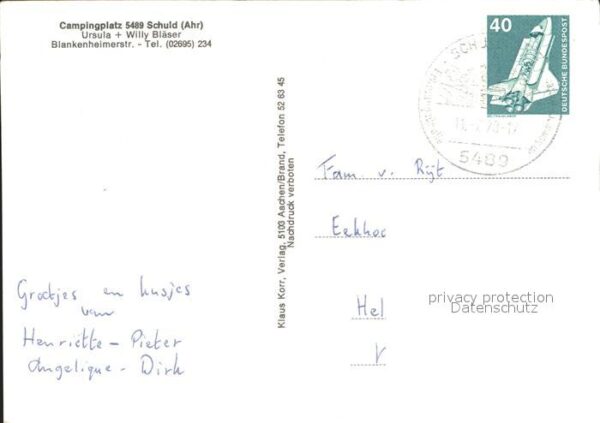 Campingplatz 5489 Schuld (Ahr)
Ursula + Willy Bläser
Blankenheimerstr. - Tel. (02695) 234
40
DEUTSCHE BUNDESPOST
5489
Klaus Korr, Verlag, 5103 Aachen/Brand, Telefon 52 63 45
Nachdruck verboten
Fam v. Rijt
Eekhoe
Hel
privacy protection
Datenschutz
Groetjes en kusjes
van
Henriëtte - Pieter
Angelique - Dirk